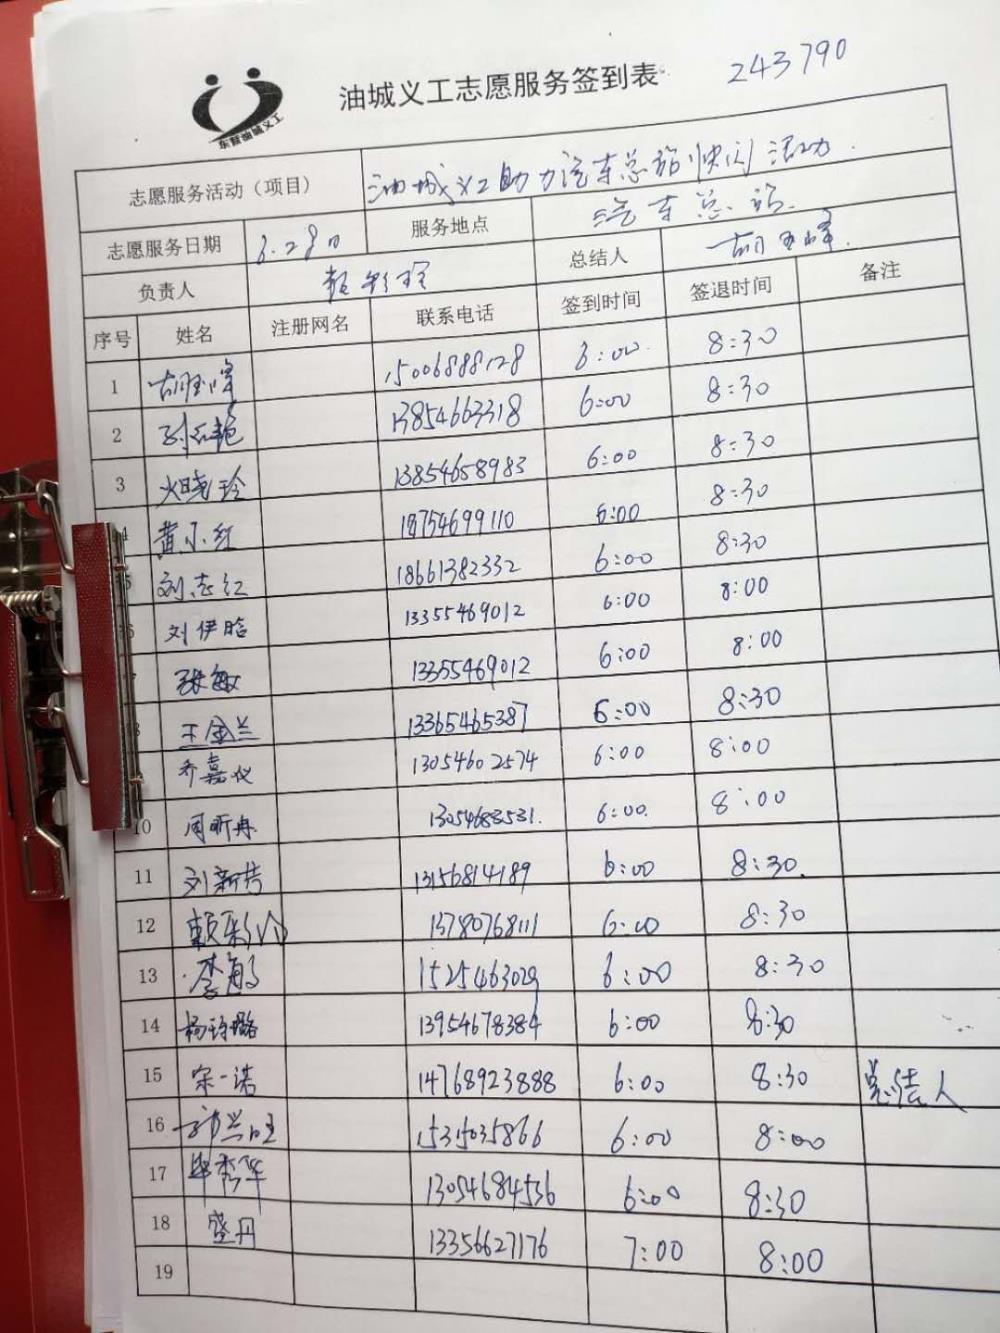 东营油城义工
油城义工志愿服务签到表 243790
志愿服务活动（项目） 油城义工助力汽车总站快闪活动.
志愿服务日期 服务地点 汽车总站.
负责人 总结人
序号 姓名 注册网名 联系电话 签到时间 签退时间 备注
1 15006888128 6:00 8:30
2 13854663318 6:00 8:30
3 火晓玲 13854658983 6:00 8:30
黄小红 18754699110 6:00 8:30
刘志红 18661382332 6:00 8:30
刘伊晗 13355469012 6:00 8:00
张敏 13355469012 6:00 8:00
王金兰 13365465387 6:00 8:30
乔嘉仪 13054602574 6:00 8:00
10 周昕冉 6:00. 8:00
11 刘新芳 13156814189 6:00 8:30.
12 13780768111 6:00 8:30
13 1525463029 6:00 8:30
14 13954678384 6:00 8:30
15 宋一诺 14768923888 6:00 8:30 总结人
16 6:00 8:00
17 毕秀华 13054684536 6:00 8:30
18 盛丹 13356627176 7:00 8:00
19